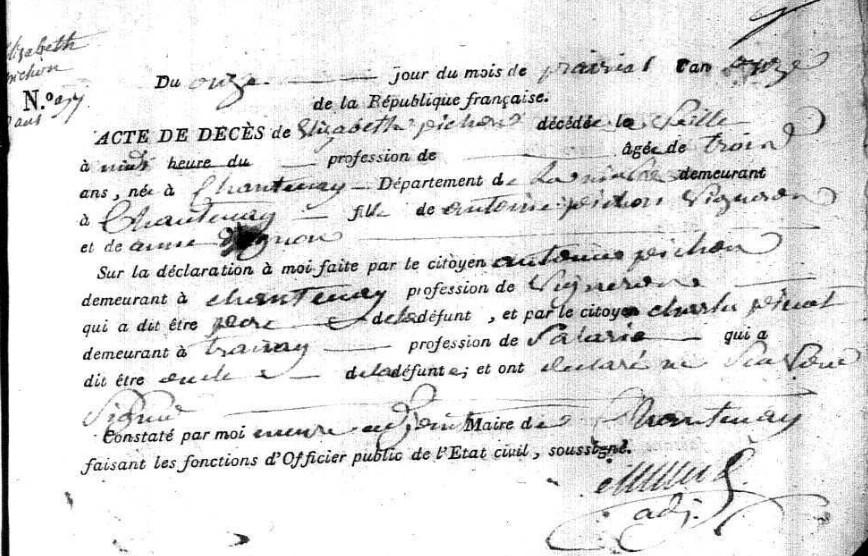 Elizabeth
pichon
N.º
ans
Du onze jour du mois de prairial l'an onze
de la République française.
ACTE DE DÉCÈS de Elizabeth pichon décédée la veille
à midi heure du profession de âgée de trois
ans, née à Chantenay Département de la nièvre demeurant
à Chantenay fille de antoine pichon Vigneron
et de anne
Sur la déclaration à moi faite par le citoyen antoine pichon
demeurant à chantenay profession de Vigneron
qui a dit être pere de la défunt, et par le citoyen charles
demeurant à profession de qui a
dit être oncle de la défunte; et ont déclaré ne Scavoir
Signer
Constaté par moi adjoint Maire de Chantenay
faisant les fonctions d'Officier public de l'Etat civil, soussigné.
adj.